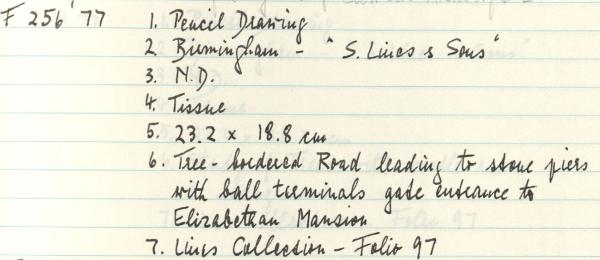 F 256'77 1. Pencil Drawing
2. Birmingham - "S. Lines & Sons"
3. N.D.
4. Tissue
5. 23.2 x 18.8 cm
6. Tree-bordered Road leading to stone piers
with ball terminals gate entrance to
Elizabethan Mansion
7. Lines Collection - Folio 97